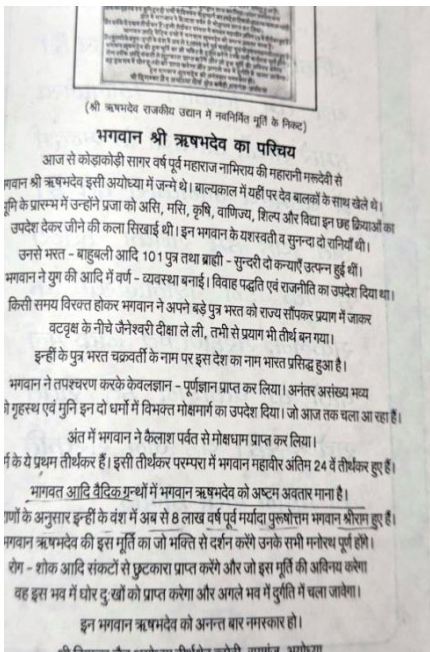 (श्री ऋषभदेव राजकीय उद्यान में नवनिर्मित मूर्ति के निकट)
भगवान श्री ऋषभदेव का परिचय
आज से कोड़ाकोड़ी सागर वर्ष पूर्व महाराज नाभिराय की महारानी मरूदेवी से
गवान श्री ऋषभदेव इसी अयोध्या में जन्मे थे। बाल्यकाल में यहीं पर देव बालकों के साथ खेले थे।
भूमि के प्रारम्भ में उन्होंने प्रजा को असि, मसि, कृषि, वाणिज्य, शिल्प और विद्या इन छह क्रियाओं का
उपदेश देकर जीने की कला सिखाई थी। इन भगवान के यशस्वती व सुनन्दा दो रानियाँ थी।
उनसे भरत - बाहुबली आदि 101 पुत्र तथा ब्राह्मी - सुन्दरी दो कन्याएँ उत्पन्न हुई थीं।
भगवान ने युग की आदि में वर्ण - व्यवस्था बनाई। विवाह पद्धति एवं राजनीति का उपदेश दिया था।
किसी समय विरक्त होकर भगवान ने अपने बड़े पुत्र भरत को राज्य सौंपकर प्रयाग में जाकर
वटवृक्ष के नीचे जैनेश्वरी दीक्षा ले ली, तभी से प्रयाग भी तीर्थ बन गया।
इन्हीं के पुत्र भरत चक्रवर्ती के नाम पर इस देश का नाम भारत प्रसिद्ध हुआ है।
भगवान ने तपश्चरण करके केवलज्ञान - पूर्णज्ञान प्राप्त कर लिया। अनंतर असंख्य भव्य
गृहस्थ एवं मुनि इन दो धर्मों में विभक्त मोक्षमार्ग का उपदेश दिया। जो आज तक चला आ रहा हैं।
अंत में भगवान ने कैलाश पर्वत से मोक्षधाम प्राप्त कर लिया।
के ये प्रथम तीर्थंकर हैं। इसी तीर्थंकर परम्परा में भगवान महावीर अंतिम 24 वें तीर्थंकर हुए हैं।
भागवत आदि वैदिक ग्रन्थों में भगवान ऋषभदेव को अष्टम अवतार माना है।
के अनुसार इन्हीं के वंश में अब से 8 लाख वर्ष पूर्व मर्यादा पुरूषोत्तम भगवान श्रीराम हुए हैं।
भगवान ऋषभदेव की इस मूर्ति का जो भक्ति से दर्शन करेंगे उनके सभी मनोरथ पूर्ण होंगे।
रोग - शोक आदि संकटों से छुटकारा प्राप्त करेंगे और जो इस मूर्ति की अविनय करेगा
वह इस भव में घोर दुःखों को प्राप्त करेगा और अगले भव में दुर्गति में चला जावेगा।
इन भगवान ऋषभदेव को अनन्त बार नमस्कार हो।